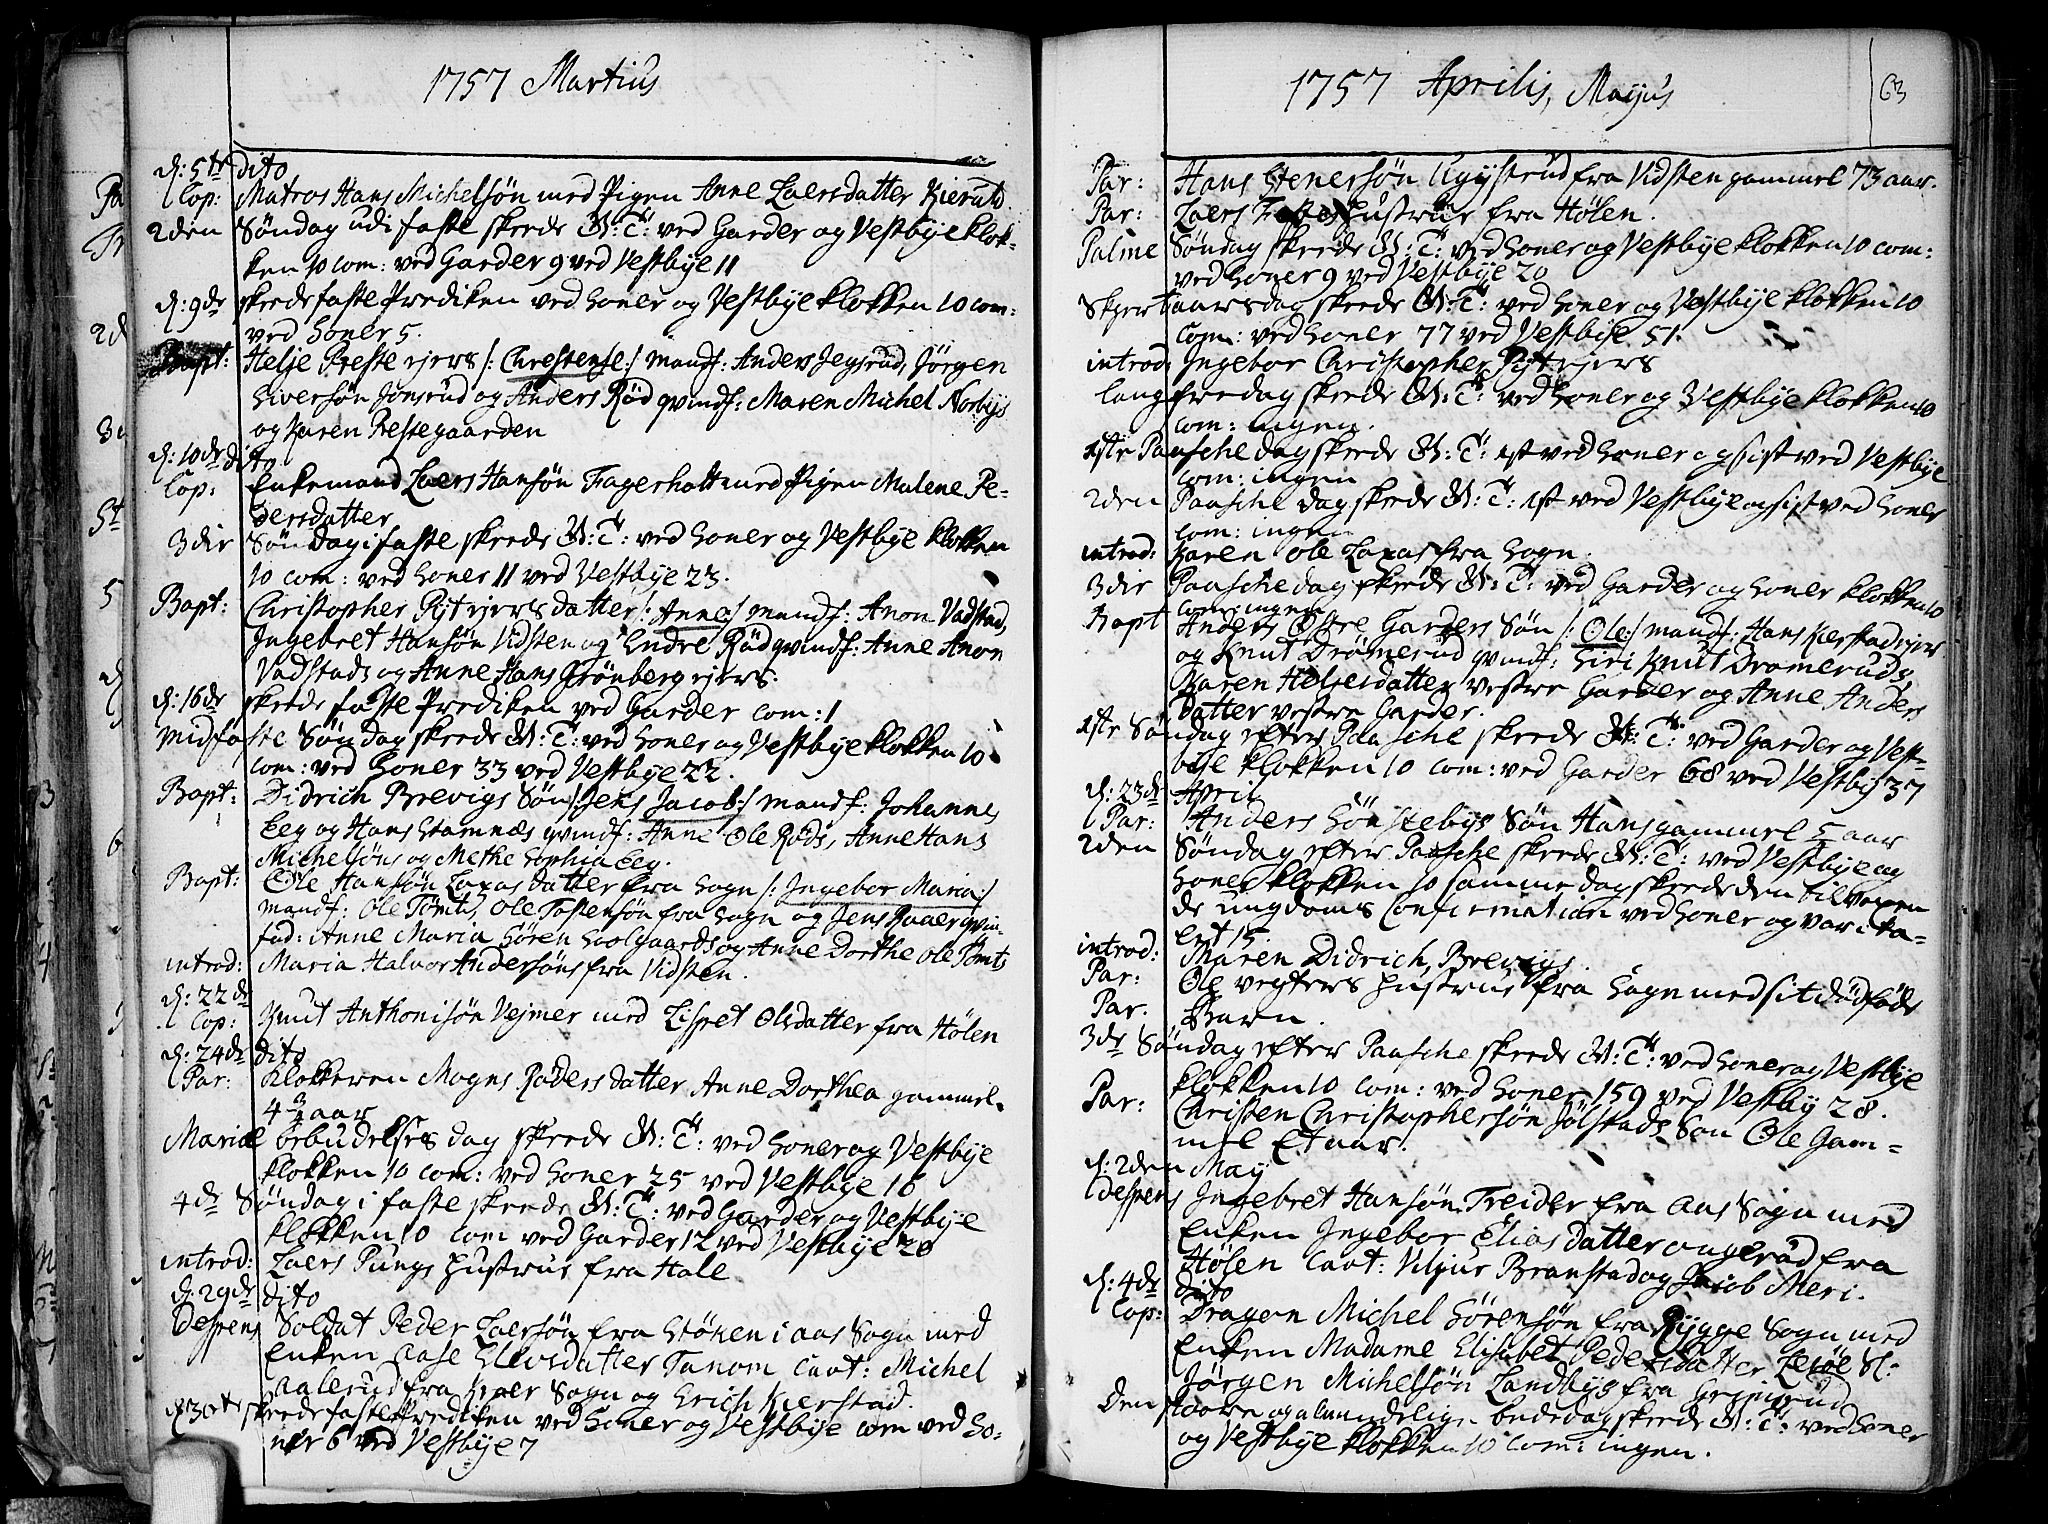 1757 Martius
d: 5te dito
Cop: Matros Hans Michelsøn med Pigen Anne Laersdatter Kierulf.
2den Søndag udi faste skeede G: T: ved Garder og Vestbye klok-
ken 10 com: ved Garder 9 ved Vestbye 11
d: 9de skeede faste Prediken ved Soner og Vestbye klokken 10 com:
ved Soner 5.
Bapt: Helje Preste ejers /: Chrestense :/ mandf: Anders Jegsrud, Jørgen
Siversøn Jonsrud og Anders Rød qvindf: Maren Michel Norbys
og Karen Prestegaarden
d: 10de dito
Cop: Enkemand Laers Hansøn Fagerholt med Pigen Malene Pe-
dersdatter
3die Søndag i faste skeede G: T: ved Soner og Vestbye klokken
10 com: ved Soner 11 ved Vestbye 23.
Bapt: Christopher Pytejers datter /: Anne :/ mandf: Anon Vadstad,
Ingebret Hansøn Vidsten og Endre Rød qvindf: Anne Anon
Vadstads og Anne Hans Grønberg ejers.
d: 16de skeede faste Prediken ved Garder com: 1
midfaste Søndag skeede G: T: ved Soner og Vestbye klokken 10
com: ved Soner 33 ved Vestbye 22.
Bapt: Didrich Brevigs Søn /: Jens Jacob :/ mandf: Johannes
Eeg og Hans Stamnæs qvindf: Anne Ole Røds, Anne Hans
Michelsøns og Methe Sophia Eeg.
Bapt: Ole Hansøn Laxas datter fra Sogn /: Ingebor Maria :/
mandf: Ole Tømt, Ole Tostensøn fra Sogn og Jens Paaer qvin-
fad: Anne Maria Søren Soolgaards og Anne Dorthe Ole Tømts
introd: Maria Halvor Andersøns fra Vidsten.
d: 22de
Cop: Knut Anthonisøn Vejmer med Lispet Olsdatter fra Hølen
d: 24de dito
Par: Klokkeren Mogns Røders datter Anne Dorthea gammel
4 3/4 aar
Mariæ bebudelses dag skeede G: T: ved Soner og Vestbye
klokken 10 com: ved Soner 25 ved Vestbye 16
4de Søndag i faste skeede G: T: ved Garder og Vestbye
klokken 10 com ved Garder 12 ved Vestbye 20
introd: Laers Pungs hustrue fra Hale
d: 29de dito
Despens Soldat Peder Laersøn fra Støken i Aas Sogn med
Enken Aase Ellevsdatter Tanom Cavt: Michel
Aalerud fra Kroer Sogn og Erich Kierstad.
d 30te skeede faste Prediken ved Soner og Vestbye com ved So-
ner 6 ved Vestbye 7
1757 Aprilis, Mayus
63
Par: Hans Stenersøn fra Vidsten gammel 73 aar.
Par: Laers hustrue fra Hølen.
Palme Søndag skeede G: T: ved Soner og Vestbye klokken 10 com:
ved Soner 9 ved Vestbye 20
Skjertaarsdag skeede G: T: ved Soner og Vestbye klokken 10
Com: ved Soner 77 ved Vestbye 51.
introd: Ingebor Christopher Pytejers
Langfredag skeede G: T: ved Soner og Vestbye klokken 10
com: ingen.
1ste Paaschedag skeede G: T: 1st ved Soner og sist ved Vestbye
com: ingen
2den Paaschedag skeede G: T: 1st ved Vestbye og sist ved Soner
com: ingen
introd: Karen Ole Laxas fra Sogn.
3die Paaschedag skeede G: T: ved Garder og Soner klokken 10
com: ingen
Bapt Anders Østre Garders Søn /: Ole :/ mandf: Hans Kierstad ejer
og Knut Drømerud qvindf: Siri Knut Dromeruds,
Karen Heljesdatter vestre Garder og Anne Anders
datter vestre Garder.
1ste Søndag efter Paasche skeede G: T: ved Garder og Vest-
bye klokken 10 com: ved Garder 68 ved Vestby 37
d: 23de April
Par: Anders Sønstebys Søn Hans gammel 5 aar
2den Søndag efter Paasche skeede G: T: ved Vestbye og
Soner klokken 10 samme dag skeede den tilvoxen
de ungdoms Confirmation ved Soner og var i ta-
let 15.
introd: Maren Didrich Brevigs.
Par: Ole vegters hustrue fra Sogn med sit dødføde
Par. Barn.
3de Søndag efter Paasche skeede G: T: ved Soner og Vestbye
klokken 10 com: ved Soner 159 ved Vestby 28.
Par: Christen Christophersøn Jølstads Søn Ole Gam-
mel Et aar.
d: 2den May
Despens Ingebret Hansøn Treider fra Aas Sogn med
Enken Ingebor Elias datter fra
Hølen Cavt: Viljus Branstad og Jacob Meri.
d: 4de dito
Cop: Dragon Michel Sørensøn fra Rygge Sogn med
Enken Madame Elisabet Pedersdatter Sl:
Jørgen Michelsøn Landbys fra
Den stoore og almindelige bededag skeede G: T: ved Soner
og Vestbye klokken 10 com: ingen.